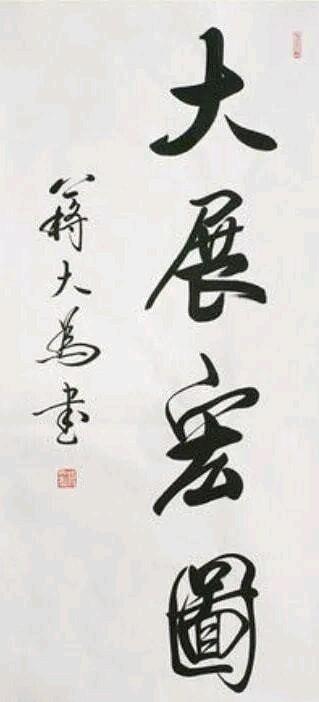 大展宏圖
蔣大為书